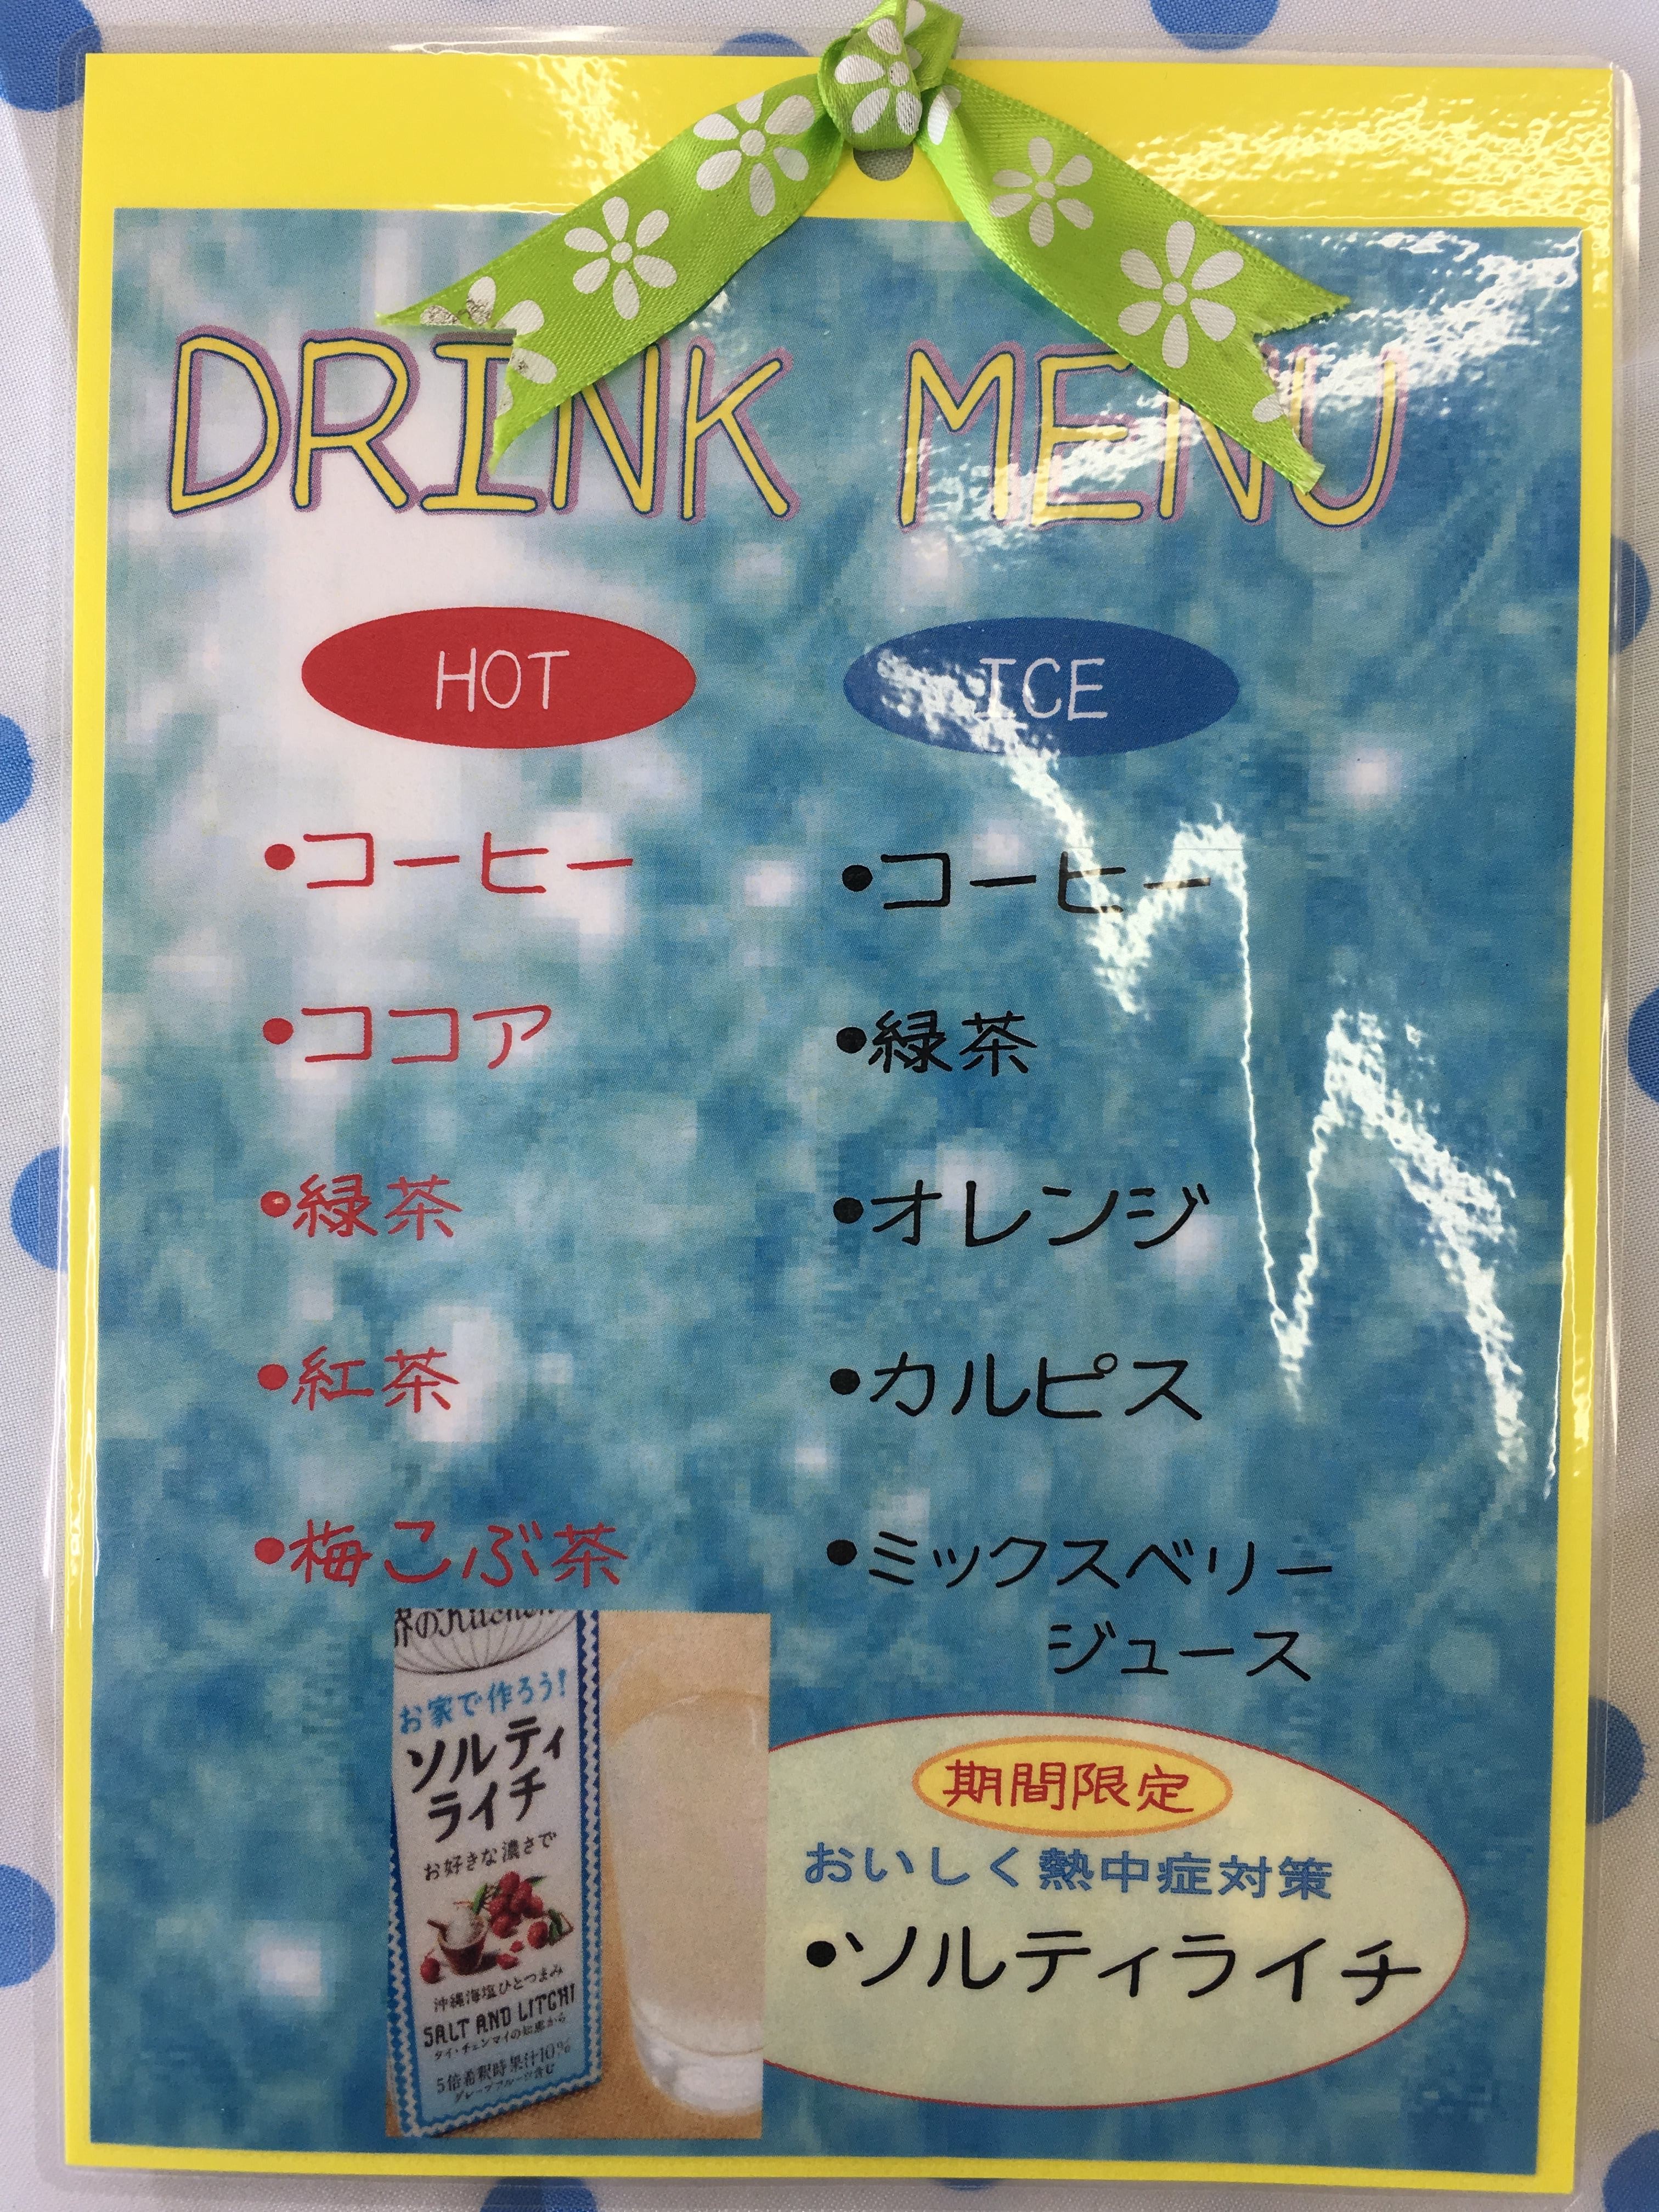 DRINK MENU
HOT
・コーヒー
・ココア
・緑茶
・紅茶
・梅こぶ茶
ICE
・コーヒー
・緑茶
・オレンジ
・カルピス
・ミックスベリー
ジュース
界のKitchen
お家で作ろう!
ソルティ
ライチ
お好きな濃さで
沖縄海塩ひとつまみ
SALT AND LITCHI
タイ・チェンマイの知恵から
5倍希釈時果汁10%
グレープフルーツ含む
期間限定
おいしく熱中症対策
・ソルティライチ